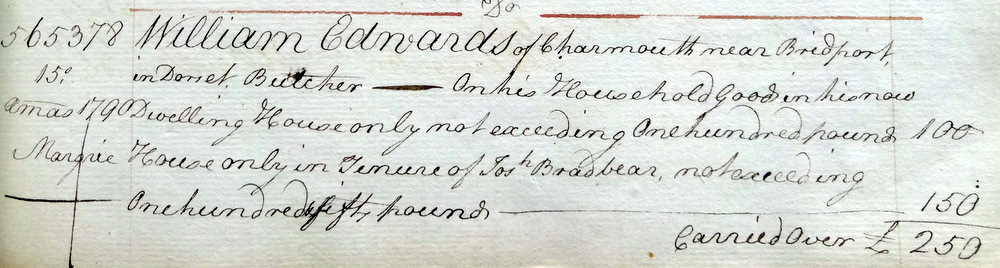 Do
565378 William Edwards of Charmouth near Bridport,
15s. in Dorset, Butcher — On his Household Goods in his now
amas 1790 Dwelling House only not exceeding One hundred pounds 100
Margrie House only in Tenure of Josh Bradbear, not exceeding
One hundred & fifty pounds 150
Carried Over £ 250